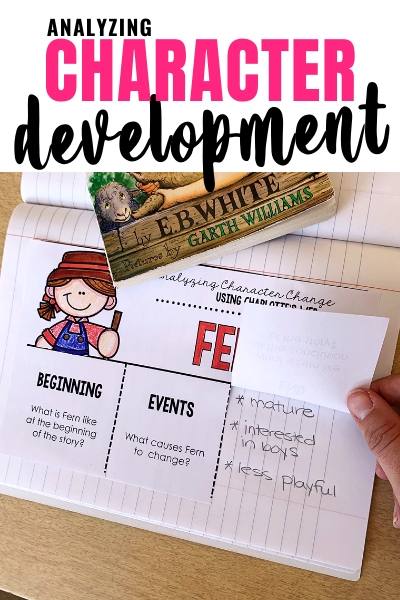 ANALYZING
CHARACTER
development
by E.B. WHITE
Pictures by GARTH WILLIAMS
Analyzing Character Change
USING CHARLOTTE'S WEB
FE
BEGINNING
What is Fern like
at the beginning
of the story?
EVENTS
What causes Fern
to change?
* mature
* interested
in boys
* less playful